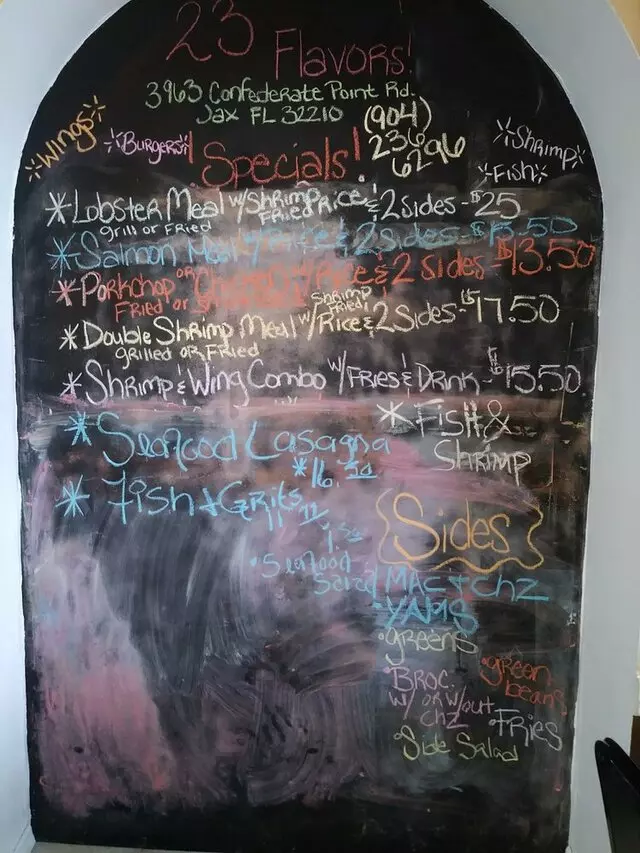 23 Flavors!
3963 Confederate Point Rd.
Jax FL 32210
(904)
236
6296
Wings
Burgers
Shrimp
Fish
Specials!
*Lobster Meal w/Shrimp Fried Rice & 2 Sides - $25
grill or Fried
*Salmon Meal w/ Rice & 2 Sides - .50
*Porkchop or w/ Rice & 2 Sides - $13.50
Fried or
*Double Shrimp Meal w/ shrimp fried Rice & 2 Sides - $17.50
grilled OR Fried
*Shrimp & Wing Combo w/ Fries & Drink - $15.50
*Seafood Lasagna
*Fish &
Shrimp
*Fish + Grits
Sides
Seafood
Salad
Mac + Chz
Yams
greens
green
beans
Broc.
w/ or w/out
Chz
Fries
Side Salad